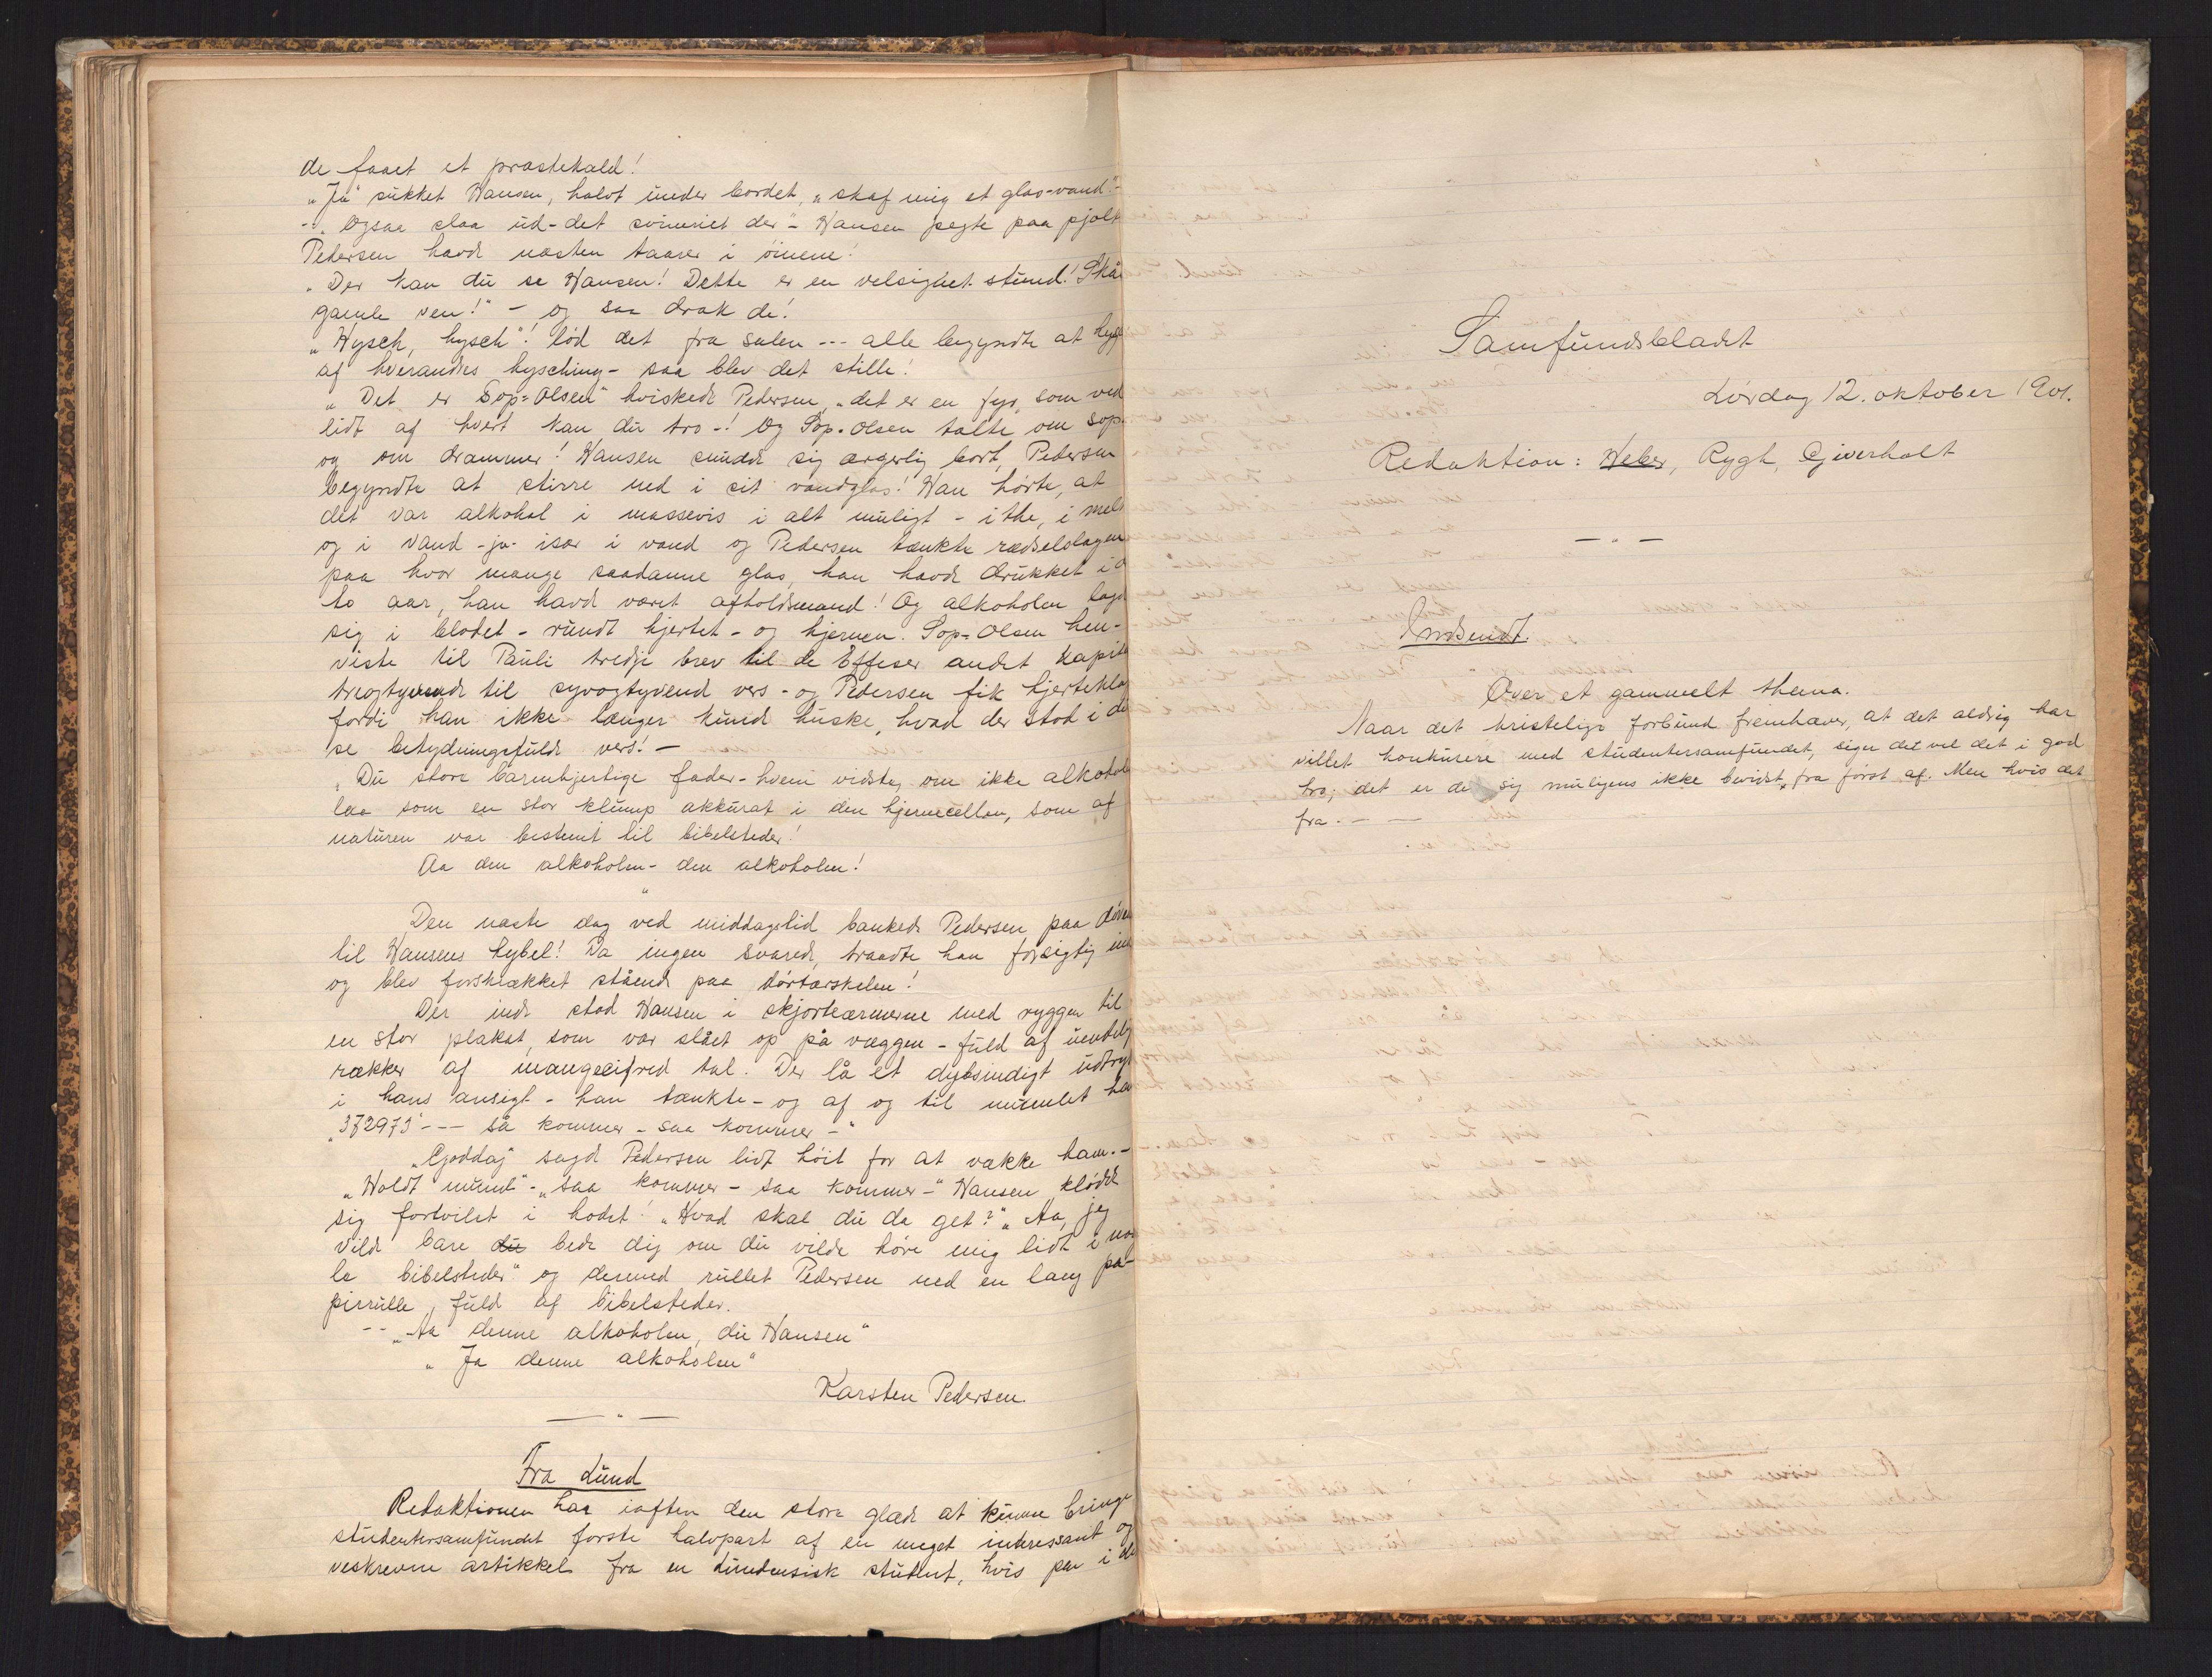 de faaet et præstekald!
"Ja" sukket Hansen, halvt under bordet, "skaf mig et glas-vand"-
-"Ogsaa slaa ud-det svineriet der"- Hansen pegte paa pjolt
Pedersen havde næsten taarer i öinene!
"Der kan du se Hansen! Dette er en velsignet stund! Skå
gamle ven!" - og saa drak de!
"Hysch, hysch"! lød det fra salen --- alle begyndte at hys
af hverandres hysching- saa blev det stille!
"Det er Sop=Olsen" hviskede Pedersen, "det er en fyr, som ved
lidt af hvert kan du tro-! Og Sop-Olsen talte om sop
og om drammer! Hansen snudde sig ærgerlig bort, Pedersen
begyndte at stirre ned i sit vandglas! Han hørte, at
det var alkohol i massevis i alt muligt - i the, i mel
og i vand -ja- især i vand og Pedersen tænkte rædselslagen
paa hvor mange saadanne glas, han havde drukket i
to aar, han havde været afholdsmand! Og alkoholen lag
sig i blodet - rundt hjertet - og hjernen. Sop=Olsen hen-
viste til Pauli tredje brev til de Effeser andet kapit
treogtyvende til syvogtyvend vers - og Pedersen fik hjertekla
fordi han ikke længer kunde huske, hvad der stod i di
se betydningsfulde vers! -
"Du store barmhjertige fader - hvem vidste, om ikke alkohol
laa som en stor klump akkurat i den hjernecellen, som af
naturen var bestemt til bibelsteder!
Aa den alkoholen - den alkoholen!
"
Den næste dag ved middagstid bankede Pedersen paa døren
til Hansens hybel! Da ingen svarede, traadte han forsigtig ind
og blev forskrækket stående paa dørtærskelen!
Der inde stod Hansen i skjorteærmerne med ryggen til
en stor plakat, som var slået op på væggen - fuld af uendelig
rækker af mangecifred tal. Der lå et dybsindigt udtryk
i hans ansigt - han tænkte - og af og til mumlet han
"372973"--- så kommer - saa kommer -"
"Goddag" sagde Pedersen lidt høit for at vække ham.-
"Holdt mund"-"saa kommer - saa kommer-" Hansen klødde
sig fortvilet i hodet! "Hvad skal du da get?" "Aa, jeg
vilde bare du bede dig om du vilde høre mig lidt i no
le bibelsteder" og dermed rullet Pedersen ned en lang pa-
pirrulle, fuld af bibelsteder.
-- "Aa denne alkoholen, du Hansen"
"Ja denne alkoholen"
Karsten Pedersen.
Fra Lund
Redaktionen har iaften den store glæde at kunne bringe
studentersamfundet første halvpart af en meget interessant og
veskrevne artikkel fra en Lundensisk student, hvis pen i de
Samfundsbladet
Lørdag 12. oktober 1901.
Redaktion: Weber, Rygh, Gjverholt
— " —
Indsendt.
Over et gammelt thema.
Naar det kristelige forbund fremhæver, at det aldrig har
villet konkurere med studentersamfundet, siger det vel det i god
tro; det er de sig muligens ikke bevidst, fra først af. Men hvis det
fra. — —